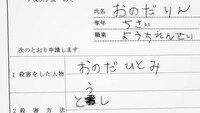 氏名 おのだりん
年齢 ちさい
職業 ようちえんせい
次のとおり申請します
1 殺害をした人物 おのだひとみ
う
とし
2 殺害方法